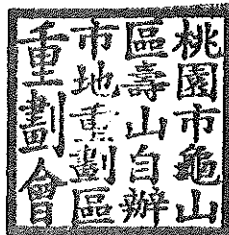 桃園市龜山
區壽山自辦
市地重劃區
重劃會